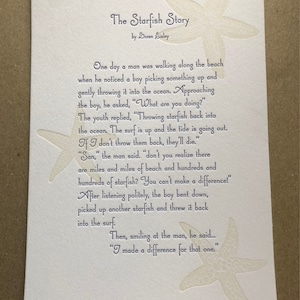 The Starfish Story
by Loren Eiseley
One day a man was walking along the beach
when he noticed a boy picking something up and
gently throwing it into the ocean. Approaching
the boy, he asked, "What are you doing?"
The youth replied, "Throwing starfish back into
the ocean. The surf is up and the tide is going out.
If I don't throw them back, they'll die."
"Son," the man said, "don't you realize there
are miles and miles of beach and hundreds and
hundreds of starfish? You can't make a difference!"
After listening politely, the boy bent down,
picked up another starfish and threw it back
into the surf.
Then, smiling at the man, he said...
"I made a difference for that one."